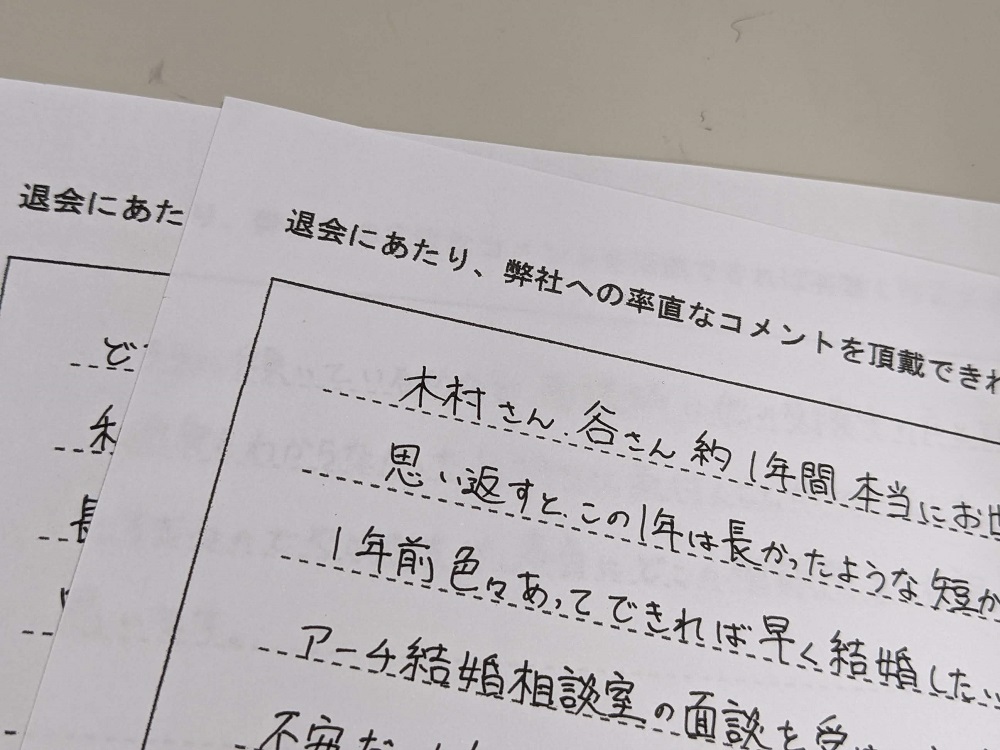 退会にあた
ど
利
長
い
退会にあたり、弊社への率直なコメントを頂戴できれ
木村さん 谷さん 約1年間 本当にお世
思い返すと、この1年は長かったような短か
1年前色々あってできれば早く結婚したい
アーチ結婚相談室の面談を受
不安だ